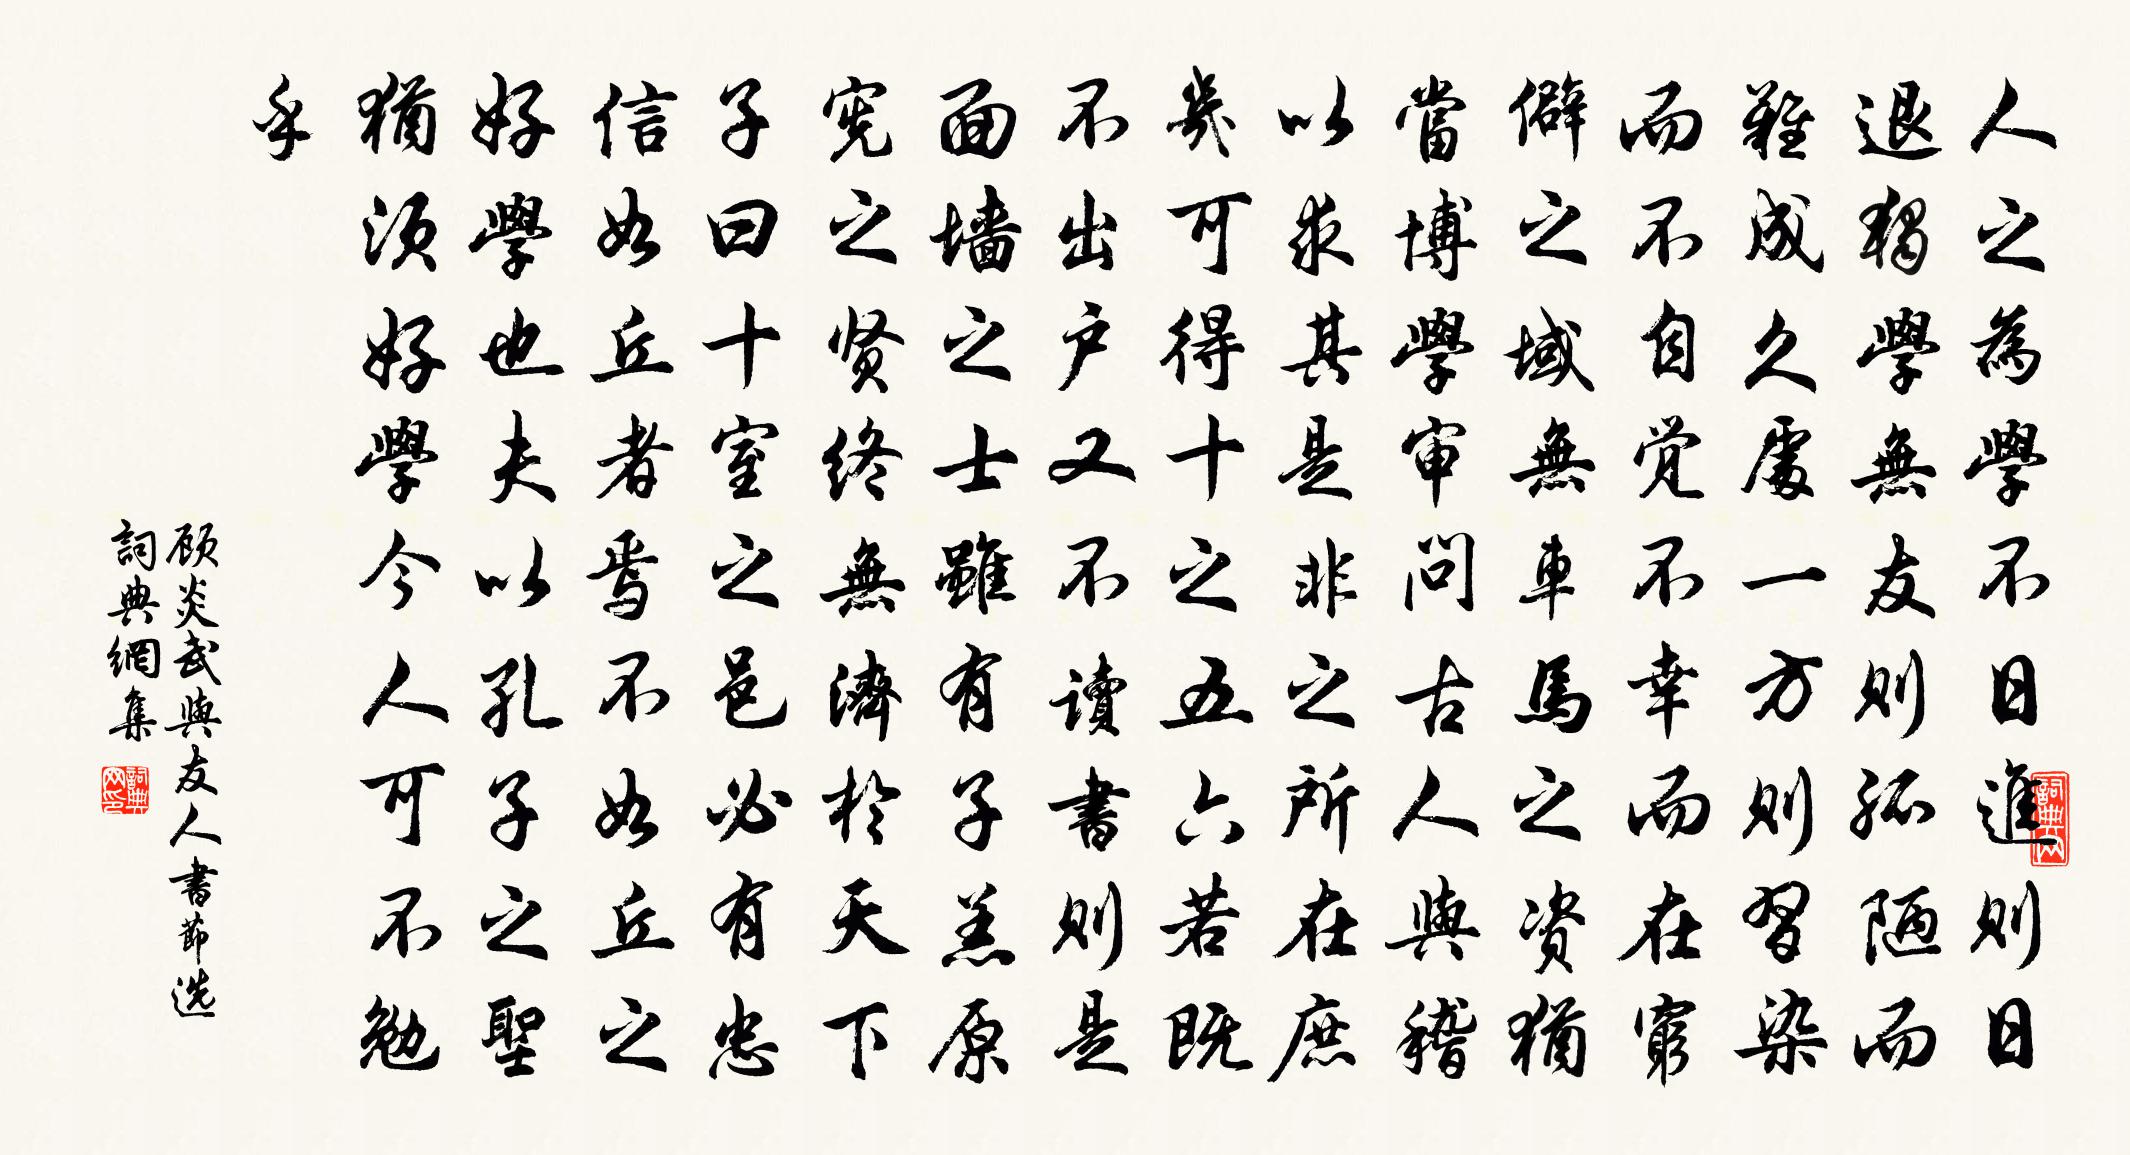 人之為學不日進則日
退獨學無友則孤陋而
難成久處一方則習染
而不自觉不幸而在窮
僻之域無車馬之资猶
當博學审問古人與稽
以求其是非之所在庶
幾可得十之五六若既
不出户又不讀書則是
面墙之士雖有子羔原
宪之贤终無濟於天下
子曰十室之邑必有忠
信如丘者焉不如丘之
好學也夫以孔子之聖
猶须好學今人可不勉
乎
顾炎武與友人書節选
詞典網集
詞典网
詞典网印